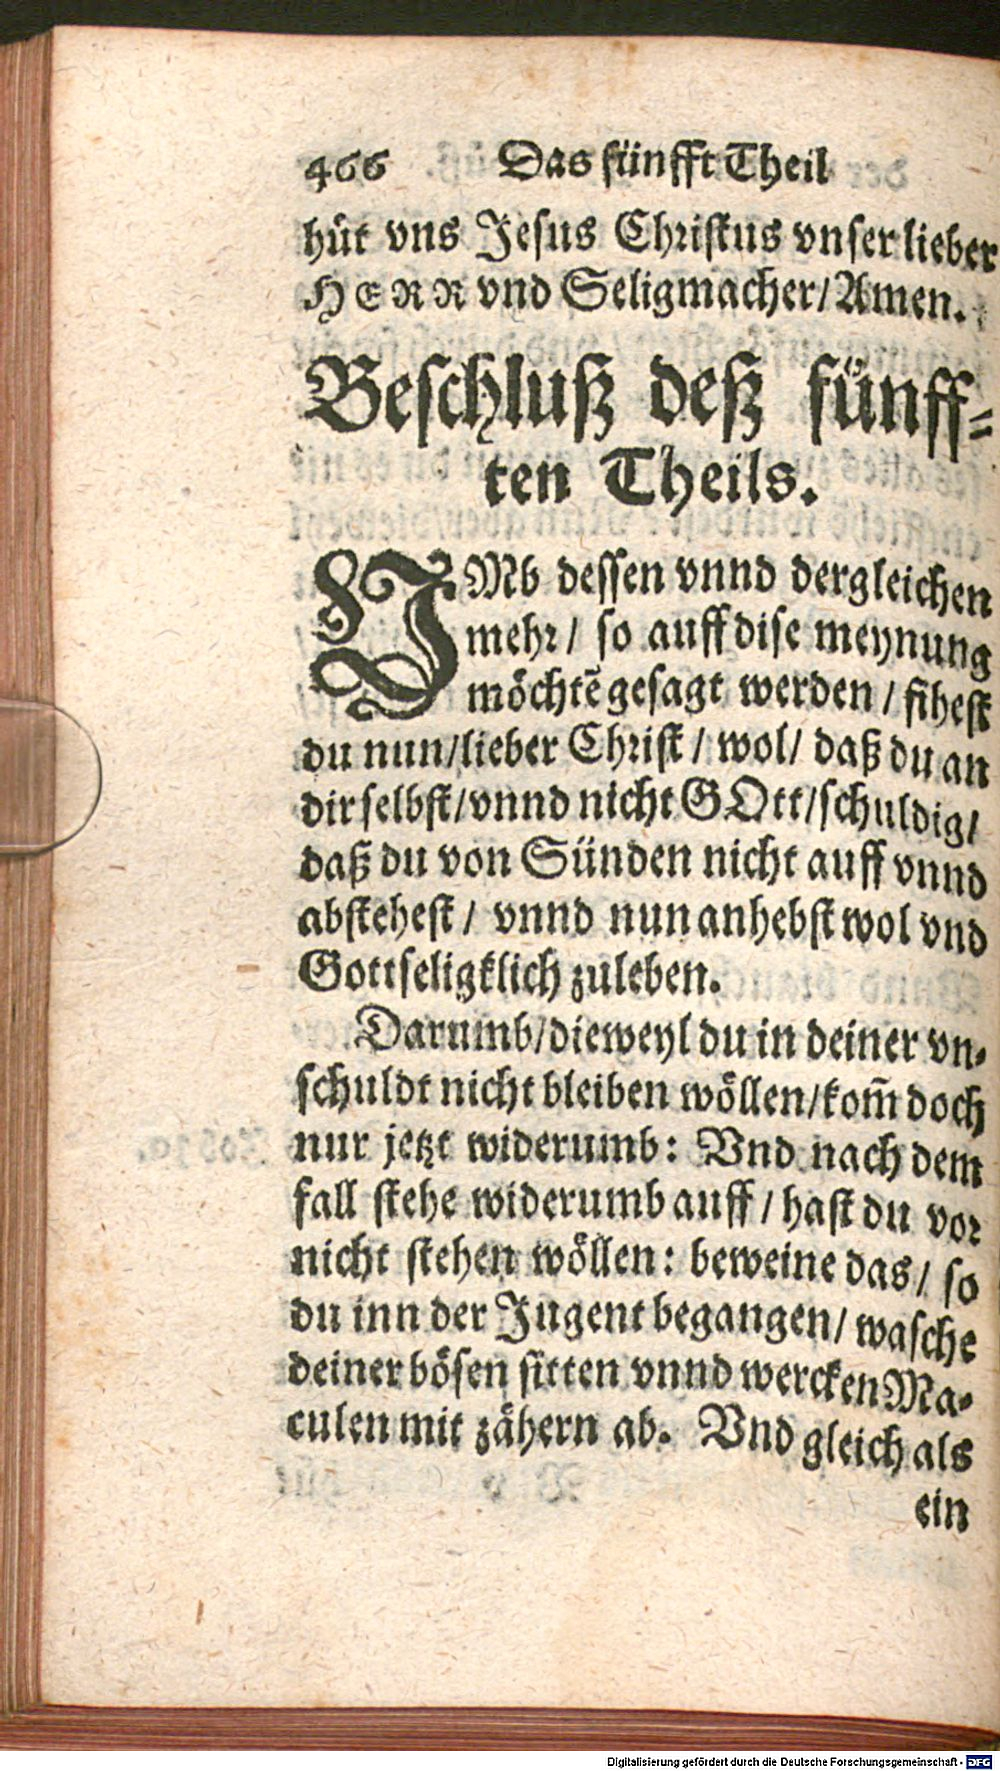 466 Das fünfft Theil
hüt vns Jesus Christus vnser lieber
HERR vnd Seligmacher/Amen.
Beschluß deß fünff-
ten Theils.
VMb dessen vnnd dergleichen
mehr/ so auff dise meynung
möchtē gesagt werden/ sihest
du nun/lieber Christ/ wol/ daß du an
dir selbst/vnnd nicht GOtt/schuldig/
daß du von Sünden nicht auff vnnd
abstehest/ vnnd nun anhebst wol vnd
Gottseligklich zuleben.
Darumb/dieweyl du in deiner vn-
schuldt nicht bleiben wöllen/kom̃ doch
nur jetzt widerumb: Vnd nach dem
fall stehe widerumb auff/ hast du vor
nicht stehen wöllen: beweine das/ so
du inn der Jugent begangen/ wasche
deiner bösen sitten vnnd wercken Ma-
culen mit zähern ab. Vnd gleich als
ein
Digitalisierung gefördert durch die Deutsche Forschungsgemeinschaft - DFG